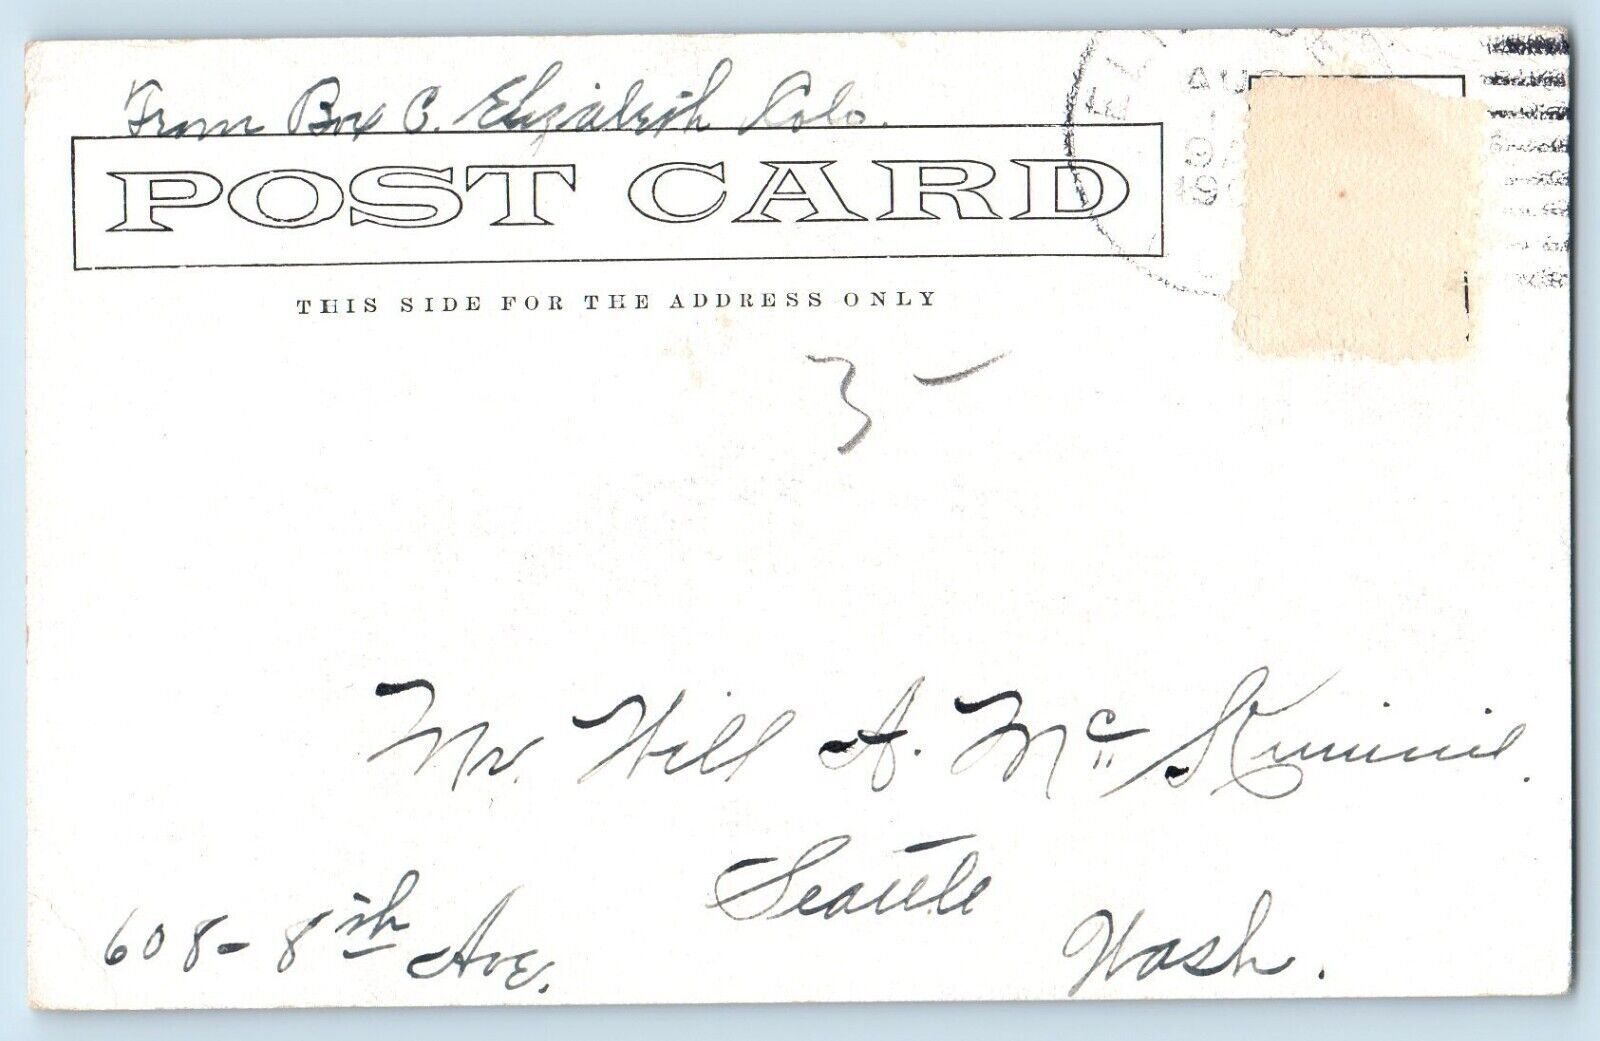 From Box C. Elizabeth Colo.
ELI
AUG
POST CARD
9A
190
THIS SIDE FOR THE ADDRESS ONLY
3 –
Mr. Will A. Mc Kinnie.
Seattle
608 - 8th Ave.
Wash.